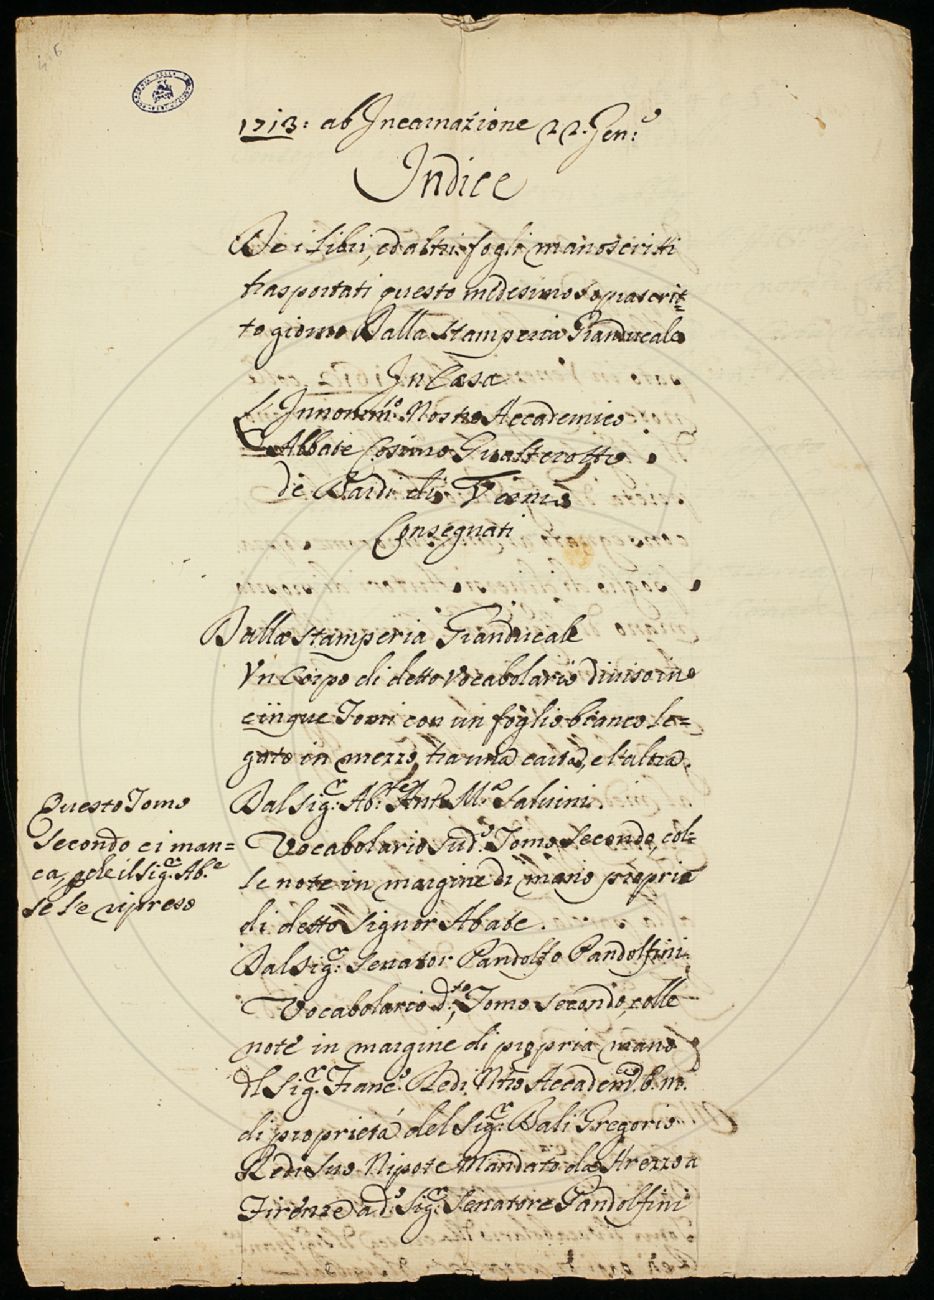 1713: ab Incarnazione 22. Gen:º
Indice
De i Libri, ed altri fogli manoscritti
trasportati questo medesimo soprascrit=
to giorno Dalla Stamperia Granducale
In Casa
L'Innom:º Nostro Accademico
Abbate Cosimo Gualterotto
de Bardi di Vernio
Consegnati
Dalla Stamperia Granducale
Vn Corpo di detto Vocabolario diviso in
cinque Tomi con un foglio bianco le=
gato in mezzo, tra una carta, e l'altra.
Dal Sig:r Ab:e Ant:º M:a Salvini
Vocabolario sud:º Tomo Secondo, col=
le note in margine di mano propria
di detto Signor Abate.
Questo Tomo
Secondo ci man=
ca, pche il Sig:r Ab:e
se le ripreso
Dal Sig:r Senator Pandolfo Pandolfini
Vocabolario d:to, Tomo Secondo, colle
note in margine di propria mano
del Sig:r Franc:º Redi Nro Accadem:º b. m.
di proprietá del Sig:r Balì Gregorio
Redi suo Nipote Mandato da Arezzo a
Firenze a d:º Sig:r Senatore Pandolfini